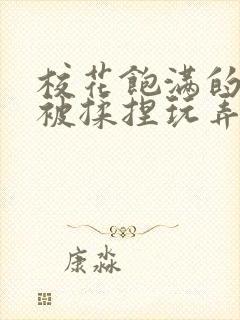 校花饱满的
被揉捏玩弄
康淼